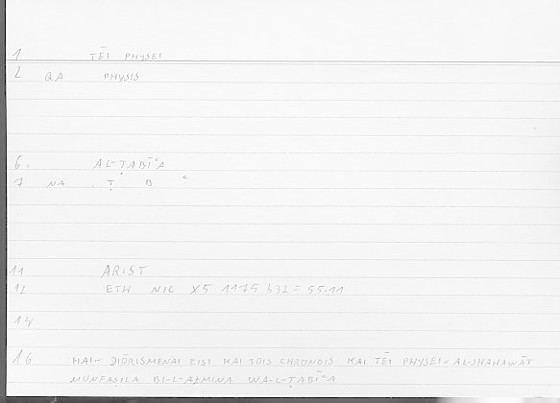 1 TĒI PHYSEI
2 QA PHYSIS
6. AL-ṬABĪʿA
7 NA Ṭ B ʿ
11 ARIST
12 ETH NIC X5 1175 b32 = 55.11
14
16 HAI- DIŌRISMENAI EISI KAI TOIS CHRONOIS KAI TĒI PHYSEI = AL-SHAHAWĀT
MUNFAṢILA BI-L-AZMINA WA-L-ṬABĪʿA